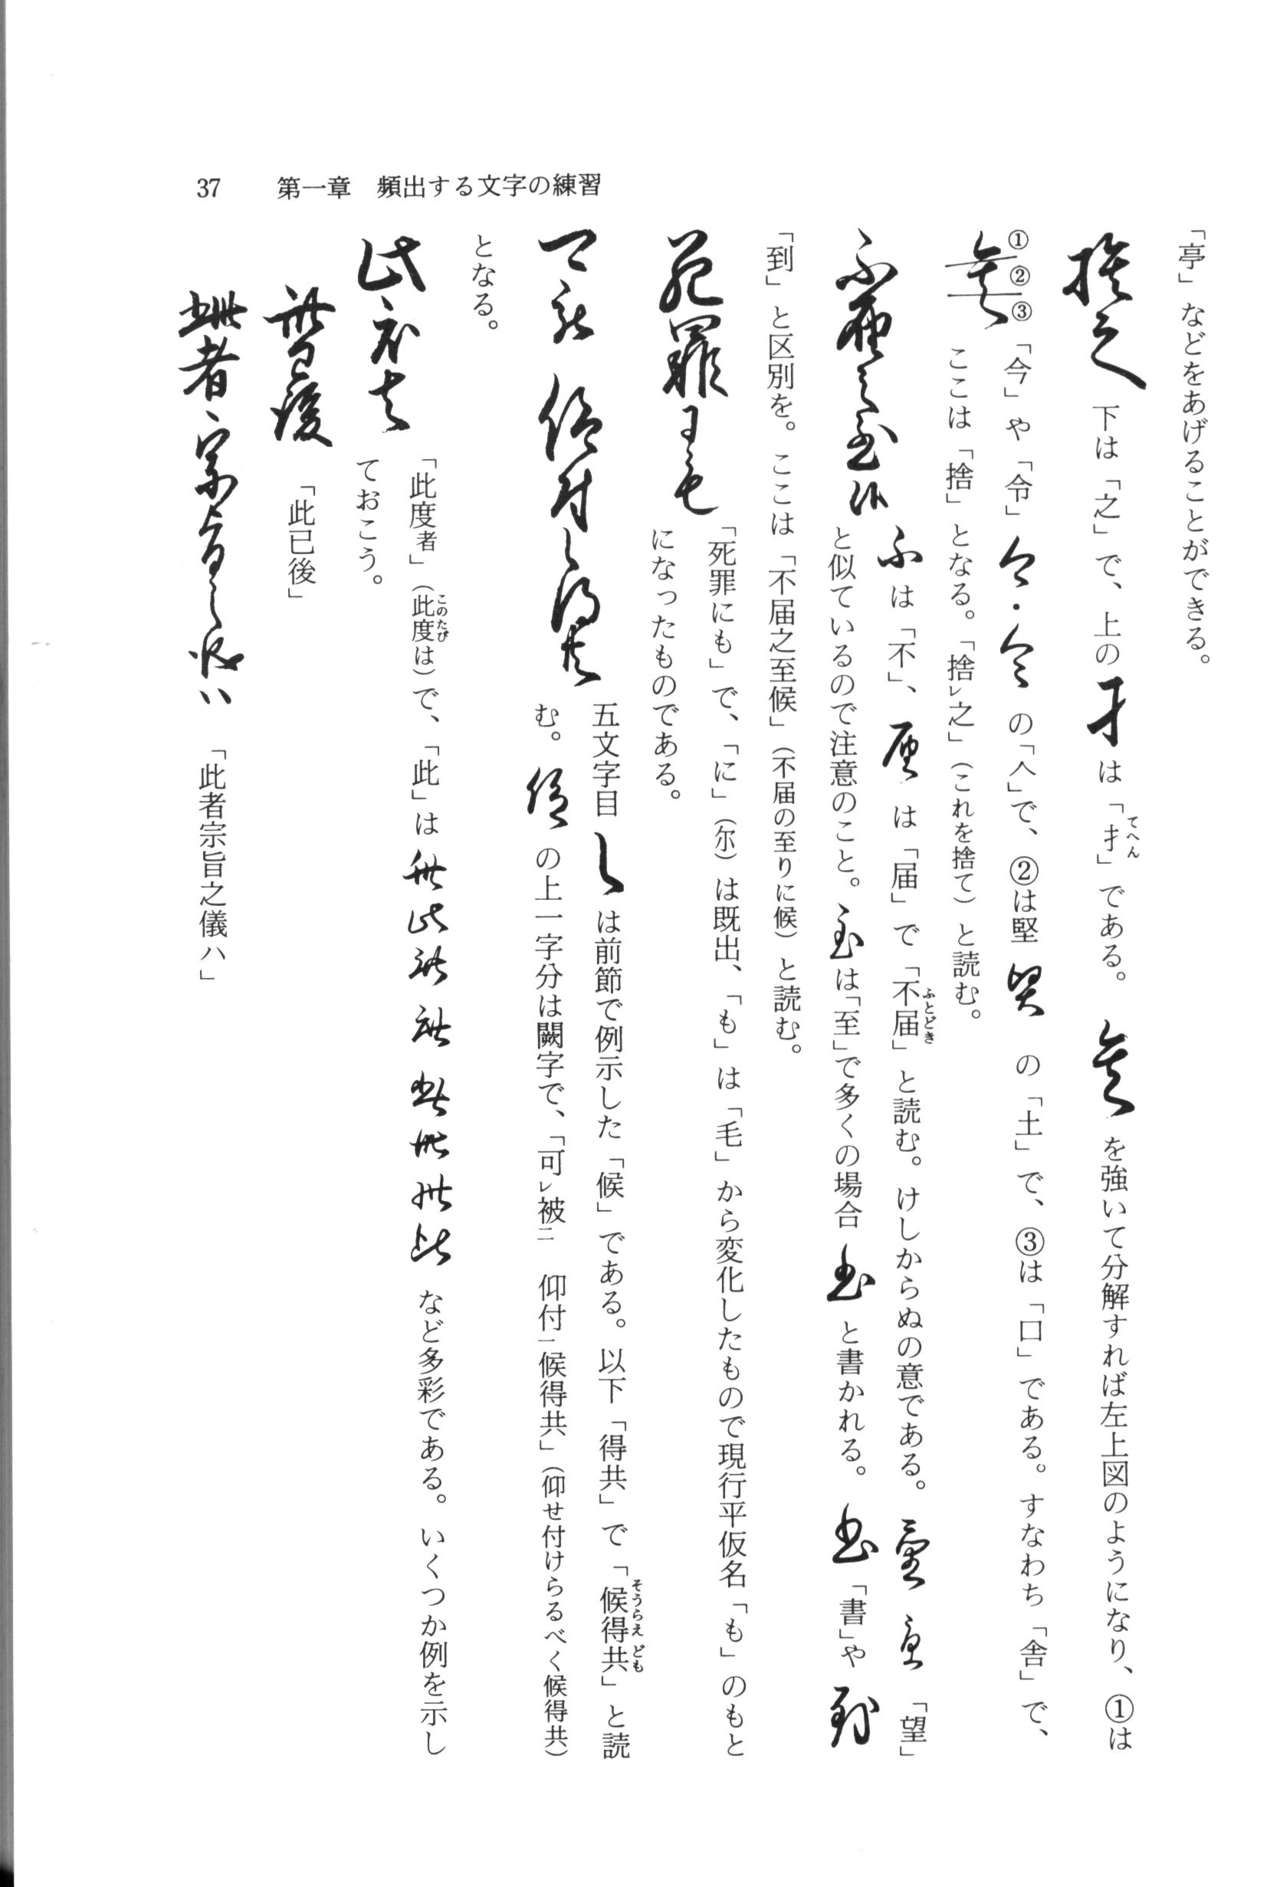 37　第一章　頻出する文字の練習
「亭」などをあげることができる。
捨之　下は「之」で、上の扌は「扌」である。を強いて分解すれば左上図のようになり、①は
①②③「今」や「令」今・令の「𠆢」で、②は堅の「土」で、③は「口」である。すなわち「舎」で、
ここは「捨」となる。「捨レ之」（これを捨て）と読む。
不届之至候　不は「不」、届は「届」で「不届」と読む。けしからぬの意である。望望「望」
と似ているので注意のこと。至は「至」で多くの場合至と書かれる。書「書」や到
「到」と区別を。ここは「不届之至候」（不届の至りに候）と読む。
死罪尓毛　「死罪にも」で、「に」（尓）は既出、「も」は「毛」から変化したもので現行平仮名「も」のもと
になったものである。
可被　仰付候得共　五文字目候は前節で例示した「候」である。以下「得共」で「候得共」と読
む。仰の上一字分は闕字で、「可レ被二　仰付一候得共」（仰せ付けらるべく候得共）
となる。
此度者　「此度者」（此度は）で、「此」は此此此此此此此此など多彩である。いくつか例を示し
ておこう。
此已後　「此已後」
此者宗旨之儀ハ　「此者宗旨之儀ハ」